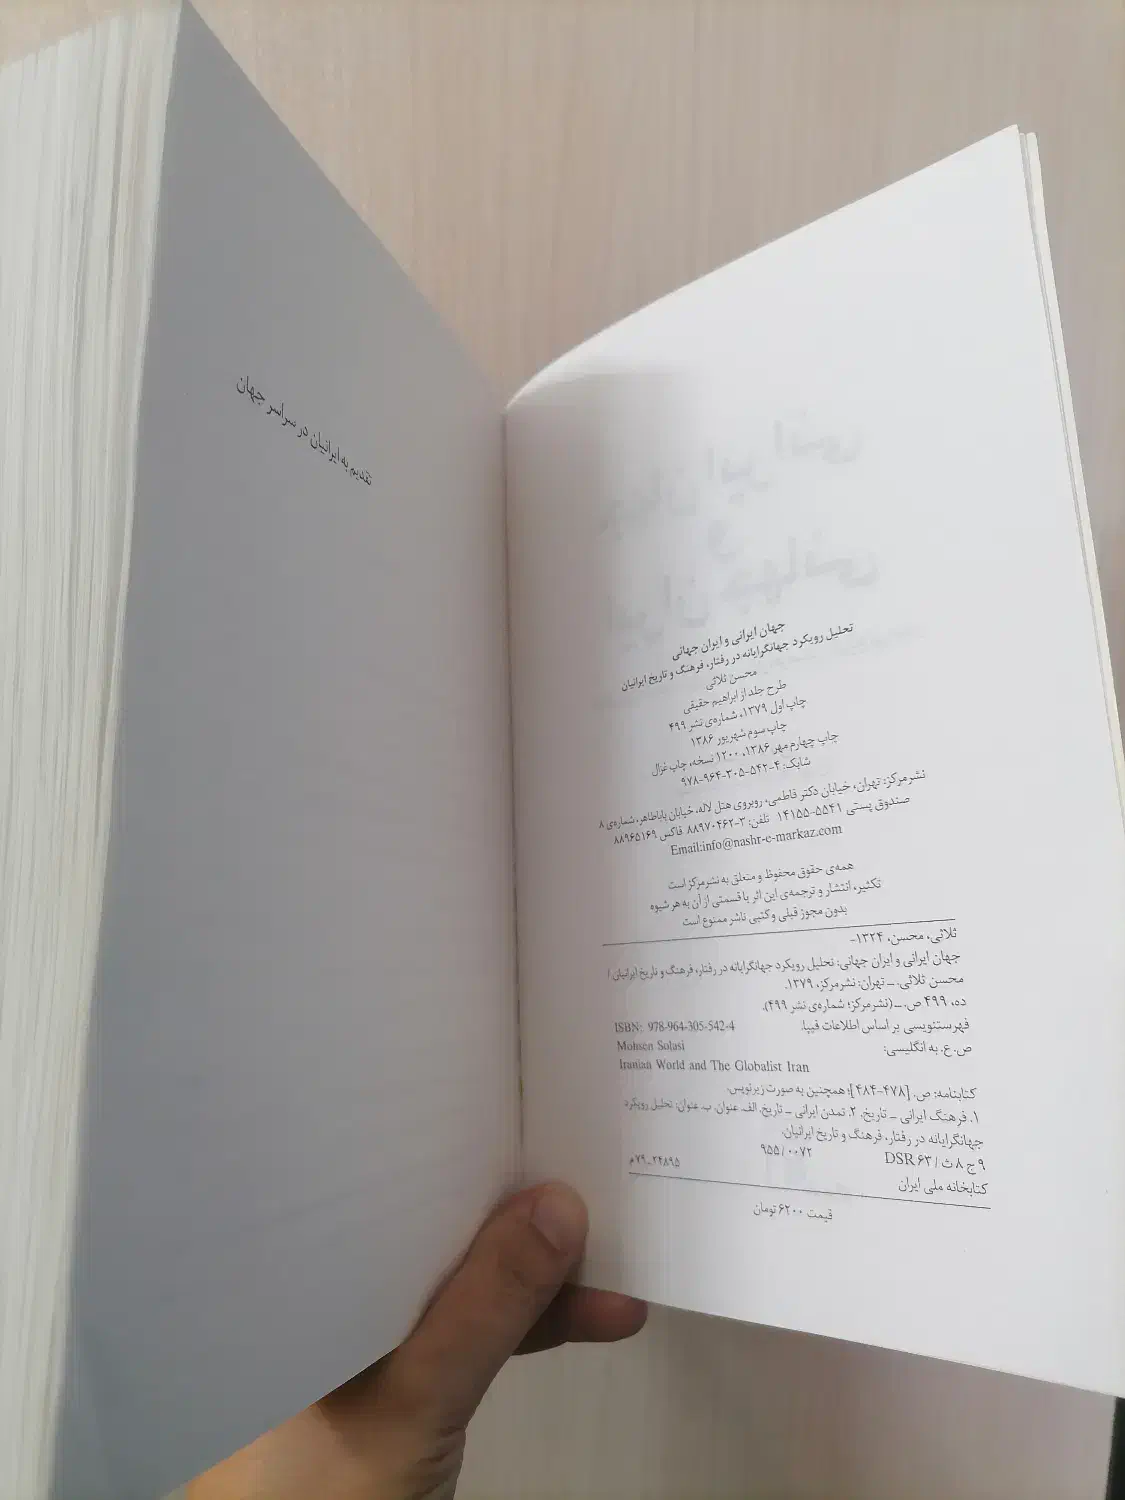 جهان ایرانی و ایران جهانی
تحلیل رویکرد جهانگرایانه در رفتار، فرهنگ و تاریخ ایرانیان
محسن ثلاثی
طرح جلد از ابراهیم حقیقی
چاپ اول ۱۳۷۹، شماره‌ی نشر ۴۹۹
چاپ سوم شهریور ۱۳۸۶
چاپ چهارم مهر ۱۳۸۶، ۱۲۰۰ نسخه، چاپ غزال
شابک: ۴-۵۴۲-۳۰۵-۹۶۴-۹۷۸
نشرمرکز: تهران، خیابان دکتر فاطمی، روبروی هتل لاله، خیابان باباطاهر، شماره‌ی ۸
صندوق پستی ۵۵۴۱-۱۴۱۵۵ تلفن: ۳-۸۸۹۷۰۴۶۲ فاکس ۸۸۹۶۵۱۶۹
Email:info@nashr-e-markaz.com
همه‌ی حقوق محفوظ و متعلق به نشرمرکز است
تکثیر، انتشار و ترجمه‌ی این اثر یا قسمتی از آن به هر شیوه
بدون مجوز قبلی و کتبی ناشر ممنوع است
ثلاثی، محسن، ۱۳۲۴-
جهان ایرانی و ایران جهانی: تحلیل رویکرد جهانگرایانه در رفتار، فرهنگ و تاریخ ایرانیان /
محسن ثلاثی. ـ تهران: نشرمرکز، ۱۳۷۹.
ده، ۴۹۹ ص. ـ (نشرمرکز؛ شماره‌ی نشر ۴۹۹).
فهرستنویسی بر اساس اطلاعات فیپا. ISBN: 978-964-305-542-4
ص. ع. به انگلیسی: Mohsen Solasi
Iranian World and The Globalist Iran
کتابنامه: ص. [۴۷۸-۴۸۴]؛ همچنین به صورت زیرنویس.
۱. فرهنگ ایرانی ـ تاریخ. ۲. تمدن ایرانی ـ تاریخ. الف. عنوان. ب. عنوان: تحلیل رویکرد
جهانگرایانه در رفتار، فرهنگ و تاریخ ایرانیان.
۹ج۸ث/۶۳ DSR ۹۵۵/۰۰۷۲ ۲۴۸۹۵-۷۹م
کتابخانه ملی ایران
قیمت ۶۲۰۰ تومان
تقدیم به ایرانیان در سراسر جهان